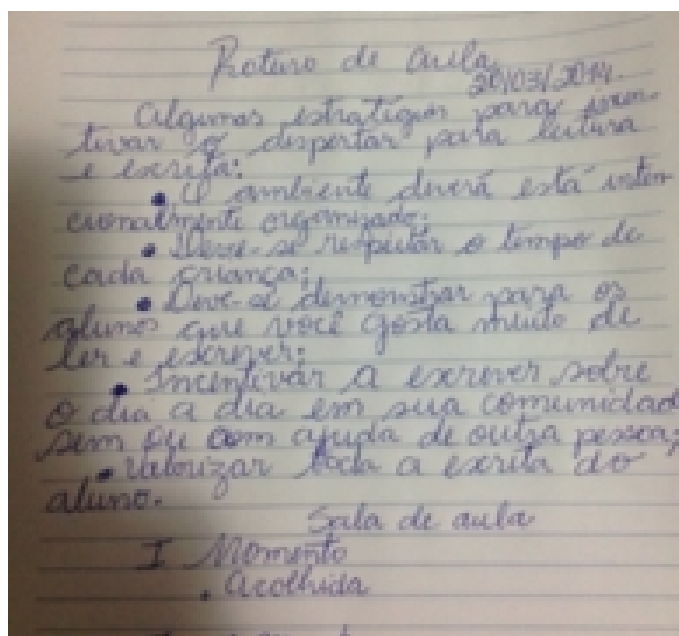 Roteiro de aula
20/03/2014.
Algumas estratégias para incen-
tivar o despertar para leitura
e escrita:
• O ambiente deverá está inten
cionalmente organizado;
• Deve-se respeitar o tempo de
cada criança;
• Deve-se demonstrar para os
alunos que você gosta muito de
ler e escrever;
• Incentivar a escrever sobre
o dia a dia em sua comunidad
sem ou com ajuda de outra pessoa;
• Valorizar toda a escrita do
aluno.
Sala de aula
I Momento
• Acolhida